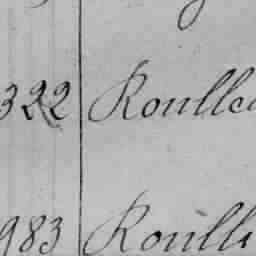 322 Roulle
983 Roüll